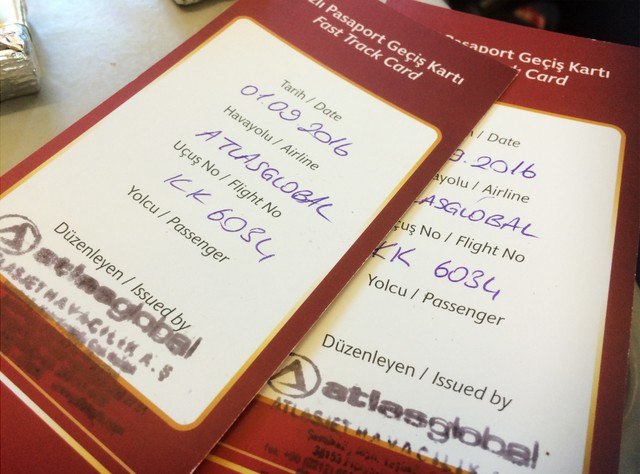 zlı Pasaport Geçiş Kartı
Fast Track Card
Tarih / Date
01.09.2016
Havayolu / Airline
ATLASGLOBAL
Uçuş No / Flight No
KK 6034
Yolcu / Passenger
Düzenleyen / Issued by
atlasglobal
ATLASJET HAVACILIK A.Ş
Pasaport Geçiş Kartı
Card
/ Date
9.2016
ayolu / Airline
ASGLOBAL
uş No / Flight No
KK 6034
Yolcu / Passenger
Düzenleyen / Issued by
atlasglobal
ATLASJET HAVACILIK